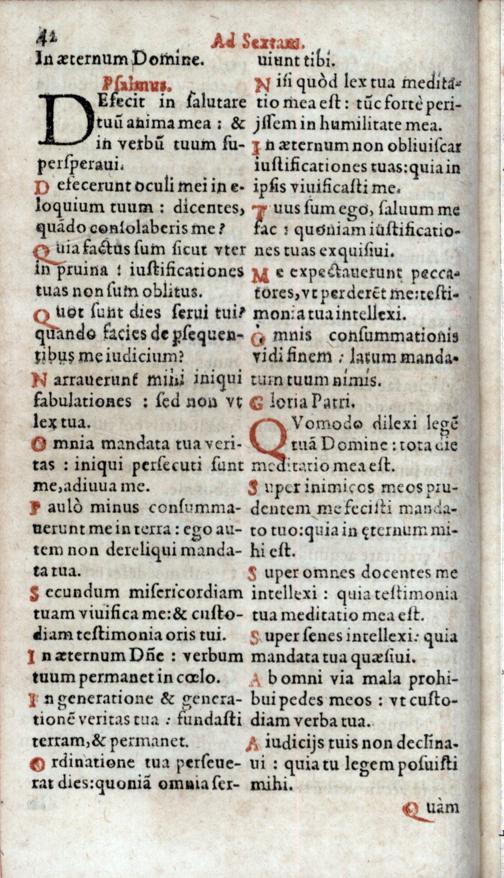 42
Ad Sextam.
In æternum Domine.
Psalmus.
DEfecit in salutare
tuū anima mea : & 
in verbū tuum su-
persperaui.
Defecerunt oculi mei in e-
loquium tuum : dicentes,
quādo consolaberis me?
Quia factus sum sicut vter
in pruina : iustificationes
tuas non sum oblitus.
Quot sunt dies serui tui?
quando facies de ꝑsequen-
tibus me iudicium?
Narrauerunt mihi iniqui
fabulationes : sed non vt
lex tua.
Omnia mandata tua veri-
tas : iniqui persecuti sunt
me, adiuua me.
Paulò minus consumma-
uerunt me in terra : ego au-
tem non dereliqui manda-
ta tua.
Secundum misericordiam
tuam viuifica me: & custo-
diam testimonia oris tui.
In æternum Dñe : verbum
tuum permanet in cœlo.
In generatione & genera-
tionē veritas tua : fundasti
terram, & permanet.
Ordinatione tua perseue-
rat dies: quoniā omnia ser-
uiunt tibi.
Nisi quòd lex tua meditā-
tio mea est : tūc fortè peri-
jssem in humilitate mea.
In æternum non obliuiscar
iustificationes tuas: quia in
ipsis viuificasti me.
Tuus sum ego, saluum me
fac : quoniam iustificatio-
nes tuas exquisiui.
Me expectauerunt pecca-
tores, vt perderēt me: testi-
monia tua intellexi.
Omnis consummationis
vidi finem : latum manda-
tum tuum nimis.
Gloria Patri.
QVomodo dilexi legē
tuā Domine : tota die
meditatio mea est.
Super inimicos meos pru-
dentem me fecisti manda-
to tuo: quia in ęternum mi-
hi est.
Super omnes docentes me
intellexi : quia testimonia
tua meditatio mea est.
Super senes intellexi: quia
mandata tua quæsiui.
Ab omni via mala prohi-
bui pedes meos : vt custo-
diam verba tua.
A iudicijs tuis non declina-
ui : quia tu legem posuisti
mihi.
Quàm